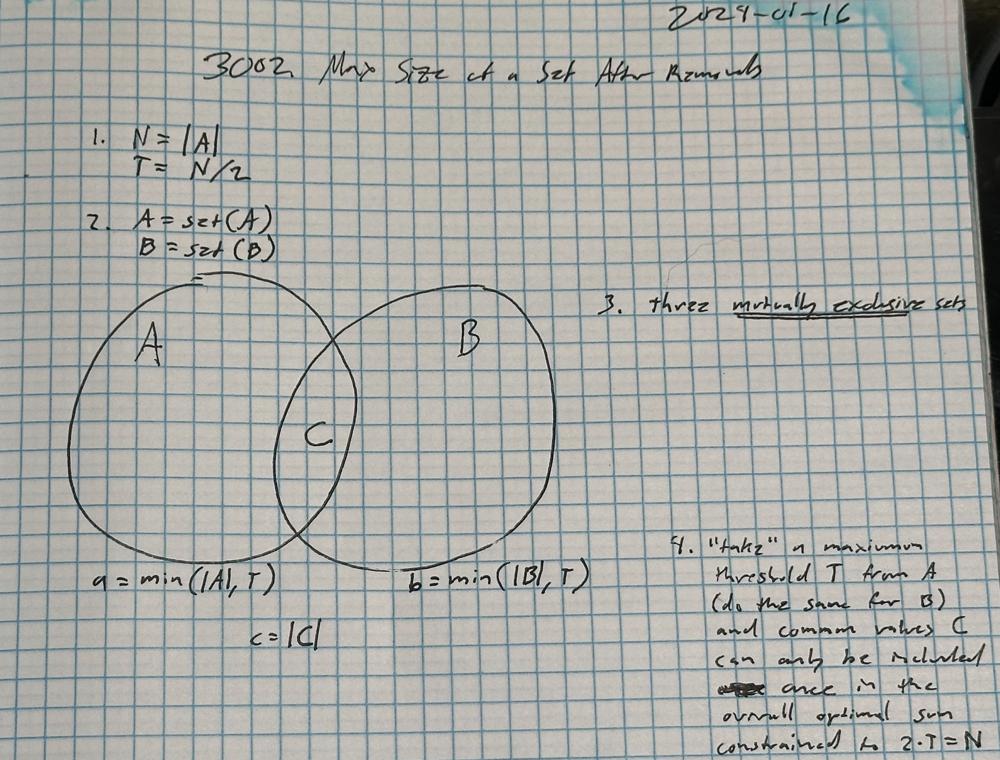 2024-01-16
3002. Max Size of a Set After Removals
1. N = |A|
T = N/2
2. A = set(A)
B = set(B)
3. three mutually exclusive sets
A
B
C
a = min(|A|, T)
b = min(|B|, T)
c = |C|
4. "take" a maximum
threshold T from A
(do the same for B)
and common values C
can only be included
once in the
overall optimal sum
constrained to 2·T = N